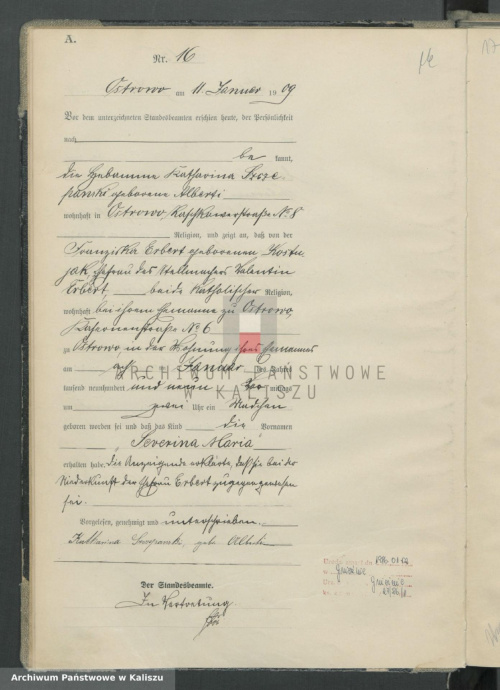 A.
Nr. 16
Ostrowo am 11. Januar 1909
Vor dem unterzeichneten Standesbeamten erschien heute, der Persönlichkeit
nach
be kannt,
die Hebamme Katharina Szcze-
panski geborene Alberti
wohnhaft in Ostrowo, Raschkowerstraße No 8
Religion, und zeigte an, daß von der
Franziska Erbert geborenen
jak, Ehefrau des Stellmachers Valentin
Erbert beide katholischer Religion,
wohnhaft bei ihrem Ehemanne zu Ostrowo,
Kasernenstraße No 6
zu Ostrowo, in der Wohnung ihres Ehemannes
am Januar des Jahres
tausend neunhundert und neun mittags
um zwei Uhr ein Mädchen
geboren worden sei und daß das Kind die Vornamen
"Severina Maria"
erhalten habe. Die Anzeigende erklärte, daß sie bei der
Niederkunft der Ehefrau Erbert zugegen gewesen
sei.
Vorgelesen, genehmigt und unterschrieben.
Katharina Szczepanski, geb. Alberti
Der Standesbeamte.
In Vertretung.
ARCHIWUM PAŃSTWOWE
W KALISZU
Archiwum Państwowe w Kaliszu